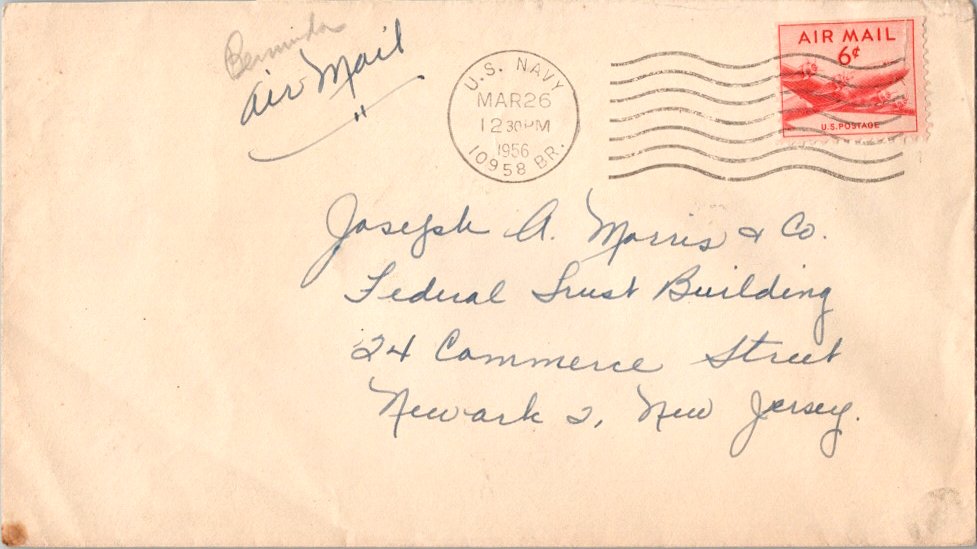 Bermuda
air Mail
"
U.S. NAVY
MAR 26
12 30 PM
1956
10958 BR.
AIR MAIL
6¢
U.S. POSTAGE
Joseph A. Morris & Co.
Federal Trust Building
24 Commerce Street
Newark 2, New Jersey.